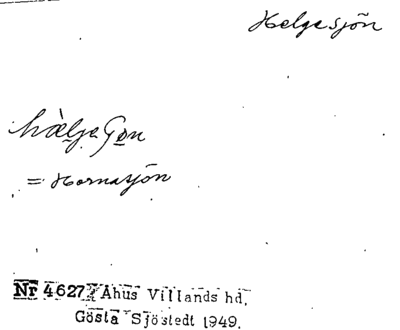 Helgesjön
hælje
= Hornasjön
Nr 4627 Åhus Villands hd.
Gösta Sjöstedt 1949.